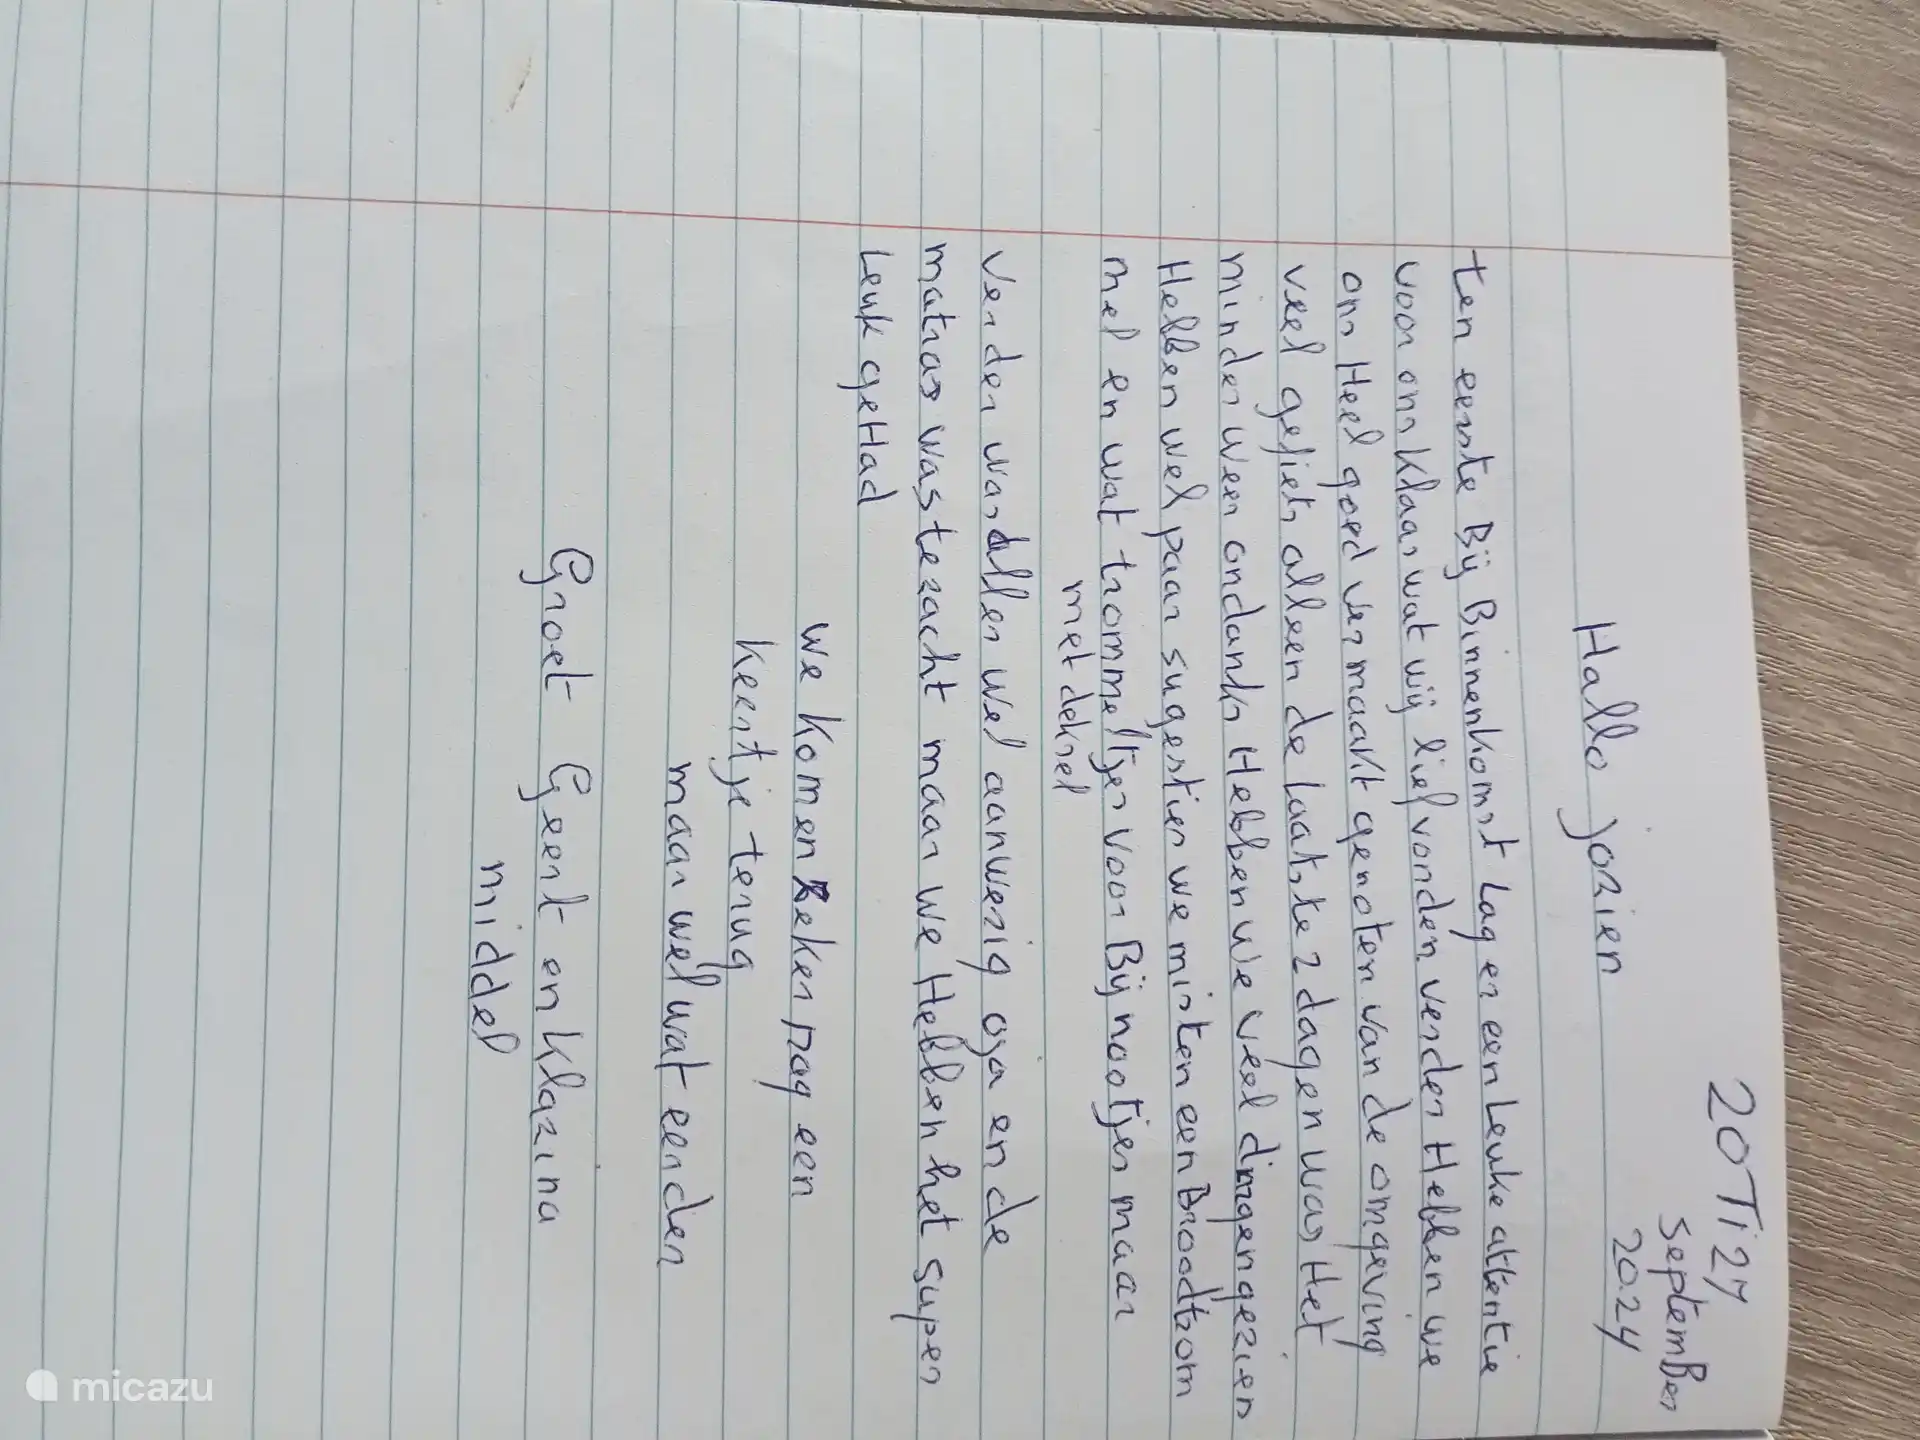 20 T/ 27
september
2024
Hallo jozien
ten eerste Bij Binnenkomst Lag er een Leuke attentie
voor ons klaar wat wij lief vonden verder Hebben we
ons Heel goed vermaakt genoten van de omgeving
veel gefiets alleen de laatste 2 dagen was Het
minder weer ondanks Hebben we veel dingen gezien
Hebben wel paar sugesties we misten een Broodtrom
mel en wat trommeltjes voor Bij nootjes maar
met deksel
verder was alles wel aanwezig oja en de
matras was te zacht maar we Hebben het super
Leuk geHad
we komen zeker nag een
keertje terug
maar wel wat eerder
Groet Geert en klazina
middel
micazu